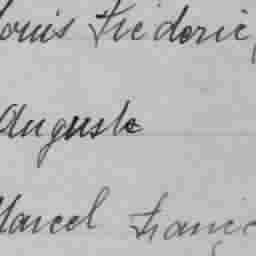 Louis Frédéric
Auguste
Marcel Franço